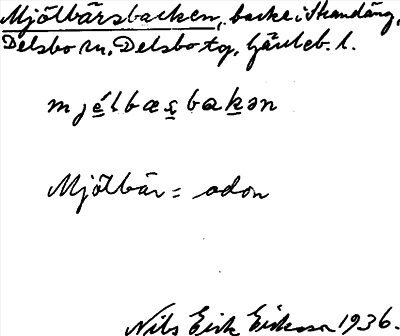 Mjölbärsbacken, backe i Strandäng,
Delsbo sn, Delsbo tg, Gävleb. l.
mjelbæṣbakən
Mjölbär = odon
Nils Erik Eriksson 1936.